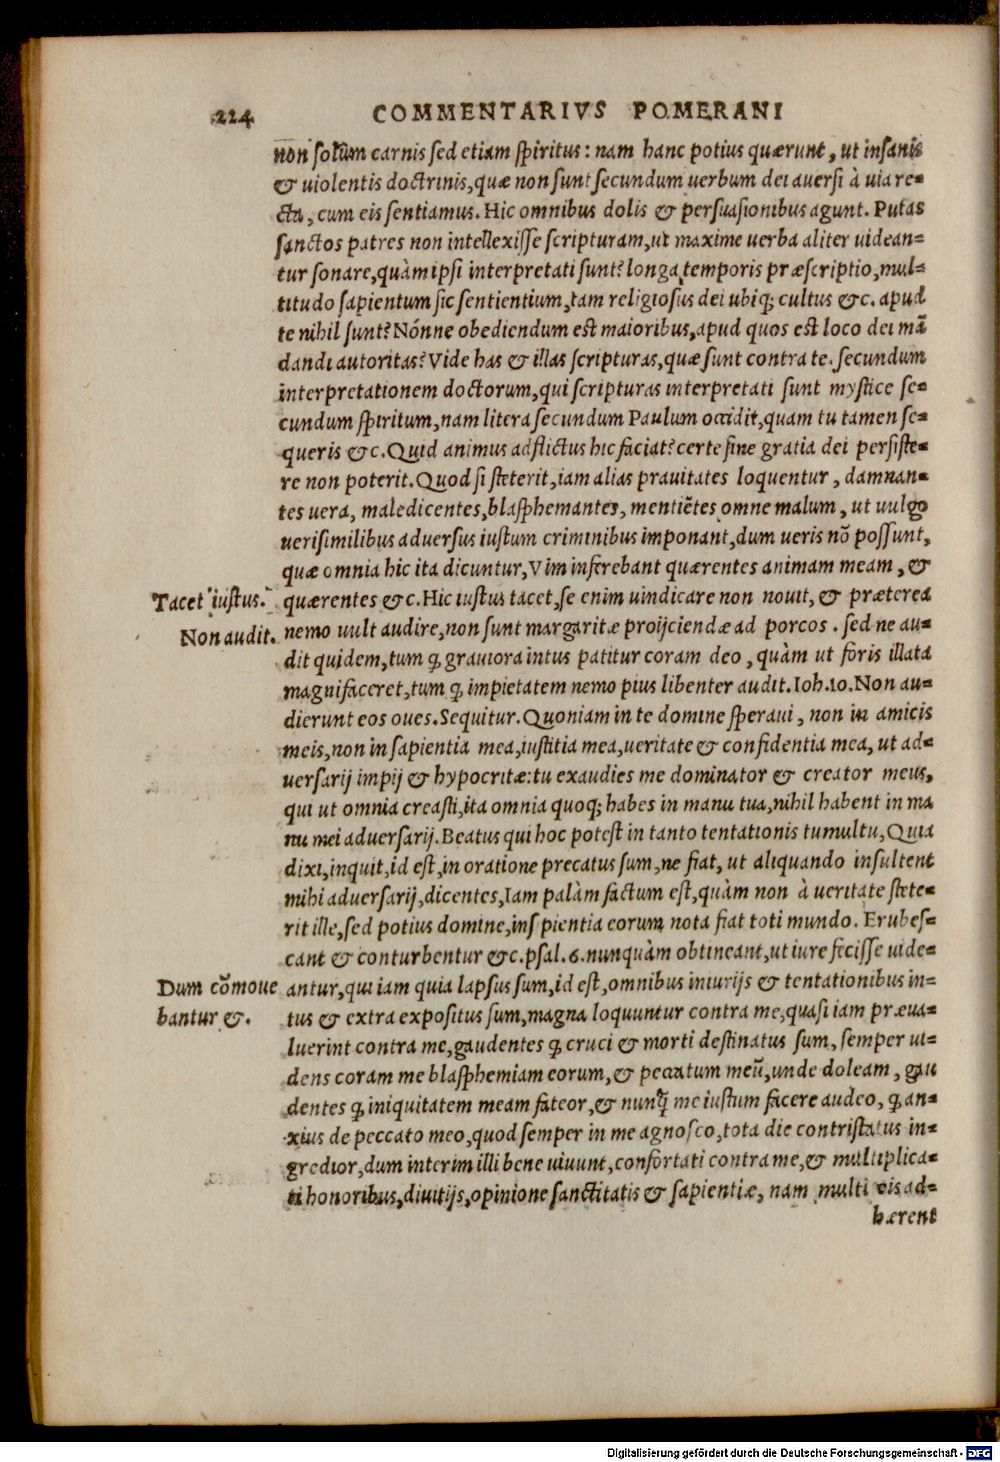 224 COMMENTARIVS POMERANI
non solùm carnis sed etiam spiritus: nam hanc potius quærunt, ut insanis
& uiolentis doctrinis, quæ non sunt secundum uerbum dei auersi à uia re-
cta, cum eis sentiamus. Hic omnibus dolis & persuasionibus agunt. Putas
sanctos patres non intellexisse scripturam, ut maxime uerba aliter uidean-
tur sonare, quàm ipsi interpretati sunt? longa temporis præscriptio, mul-
titudo sapientum sic sentientium, tam religiosus dei ubiq; cultus &c. apud
te nihil sunt? Nónne obediendum est maioribus, apud quos est loco dei mā
dandi autoritas? Vide has & illas scripturas, quæ sunt contra te. secundum
interpretationem doctorum, qui scripturas interpretati sunt mystice se-
cundum spiritum, nam litera secundum Paulum occidit, quam tu tamen se-
queris &c. Quid animus adflictus hic faciat? certe sine gratia dei persiste-
re non poterit. Quod si steterit, iam alias prauitates loquentur, damnan-
tes uera, maledicentes, blasphemantes, mentiẽtes omne malum, ut uulgo
uerisimilibus aduersus iustum criminibus imponant, dum ueris nõ possunt,
quæ omnia hic ita dicuntur, Vim inferebant quærentes animam meam, &
Tacet iustus. quærentes &c. Hic iustus tacet, se enim uindicare non nouit, & præterea
Non audit. nemo uult audire, non sunt margaritæ proijciendæ ad porcos. sed ne au-
dit quidem, tum q̃ grauiora intus patitur coram deo, quàm ut foris illata
magnifaceret, tum q̃ impietatem nemo pius libenter audit. Ioh. 10. Non au-
dierunt eos oues. Sequitur. Quoniam in te domine speraui, non in amicis
meis, non in sapientia mea, iustitia mea, ueritate & confidentia mea, ut ad-
uersarij impij & hypocritæ: tu exaudies me dominator & creator meus,
qui ut omnia creasti, ita omnia quoq; habes in manu tua, nihil habent in ma
nu mei aduersarij. Beatus qui hoc potest in tanto tentationis tumultu, Quia
dixi, inquit, id est, in oratione precatus sum, ne fiat, ut aliquando insultent
mihi aduersarij, dicentes, Iam palàm factum est, quàm non à ueritate stete-
rit ille, sed potius domine, insipientia eorum nota fiat toti mundo. Erubes-
cant & conturbentur &c. psal. 6. nunquàm obtineant, ut iure fecisse uide-
Dum cõmoue antur, qui iam quia lapsus sum, id est, omnibus iniurijs & tentationibus in-
bantur &. tus & extra expositus sum, magna loquuntur contra me, quasi iam præua-
luerint contra me, gaudentes q̃ cruci & morti destinatus sum, semper ui-
dens coram me blasphemiam eorum, & peccatum meũ, unde doleam, gau
dentes q̃ iniquitatem meam fateor, & nunq̃ me iustum facere audeo, q̃ an-
xius de peccato meo, quod semper in me agnosco, tota die contristatus in-
gredior, dum interim illi bene uiuunt, confortati contra me, & multiplica-
ti honoribus, diuitijs, opinione sanctitatis & sapientiæ, nam multi eis ad-
hærent
Digitalisierung gefördert durch die Deutsche Forschungsgemeinschaft - DFG